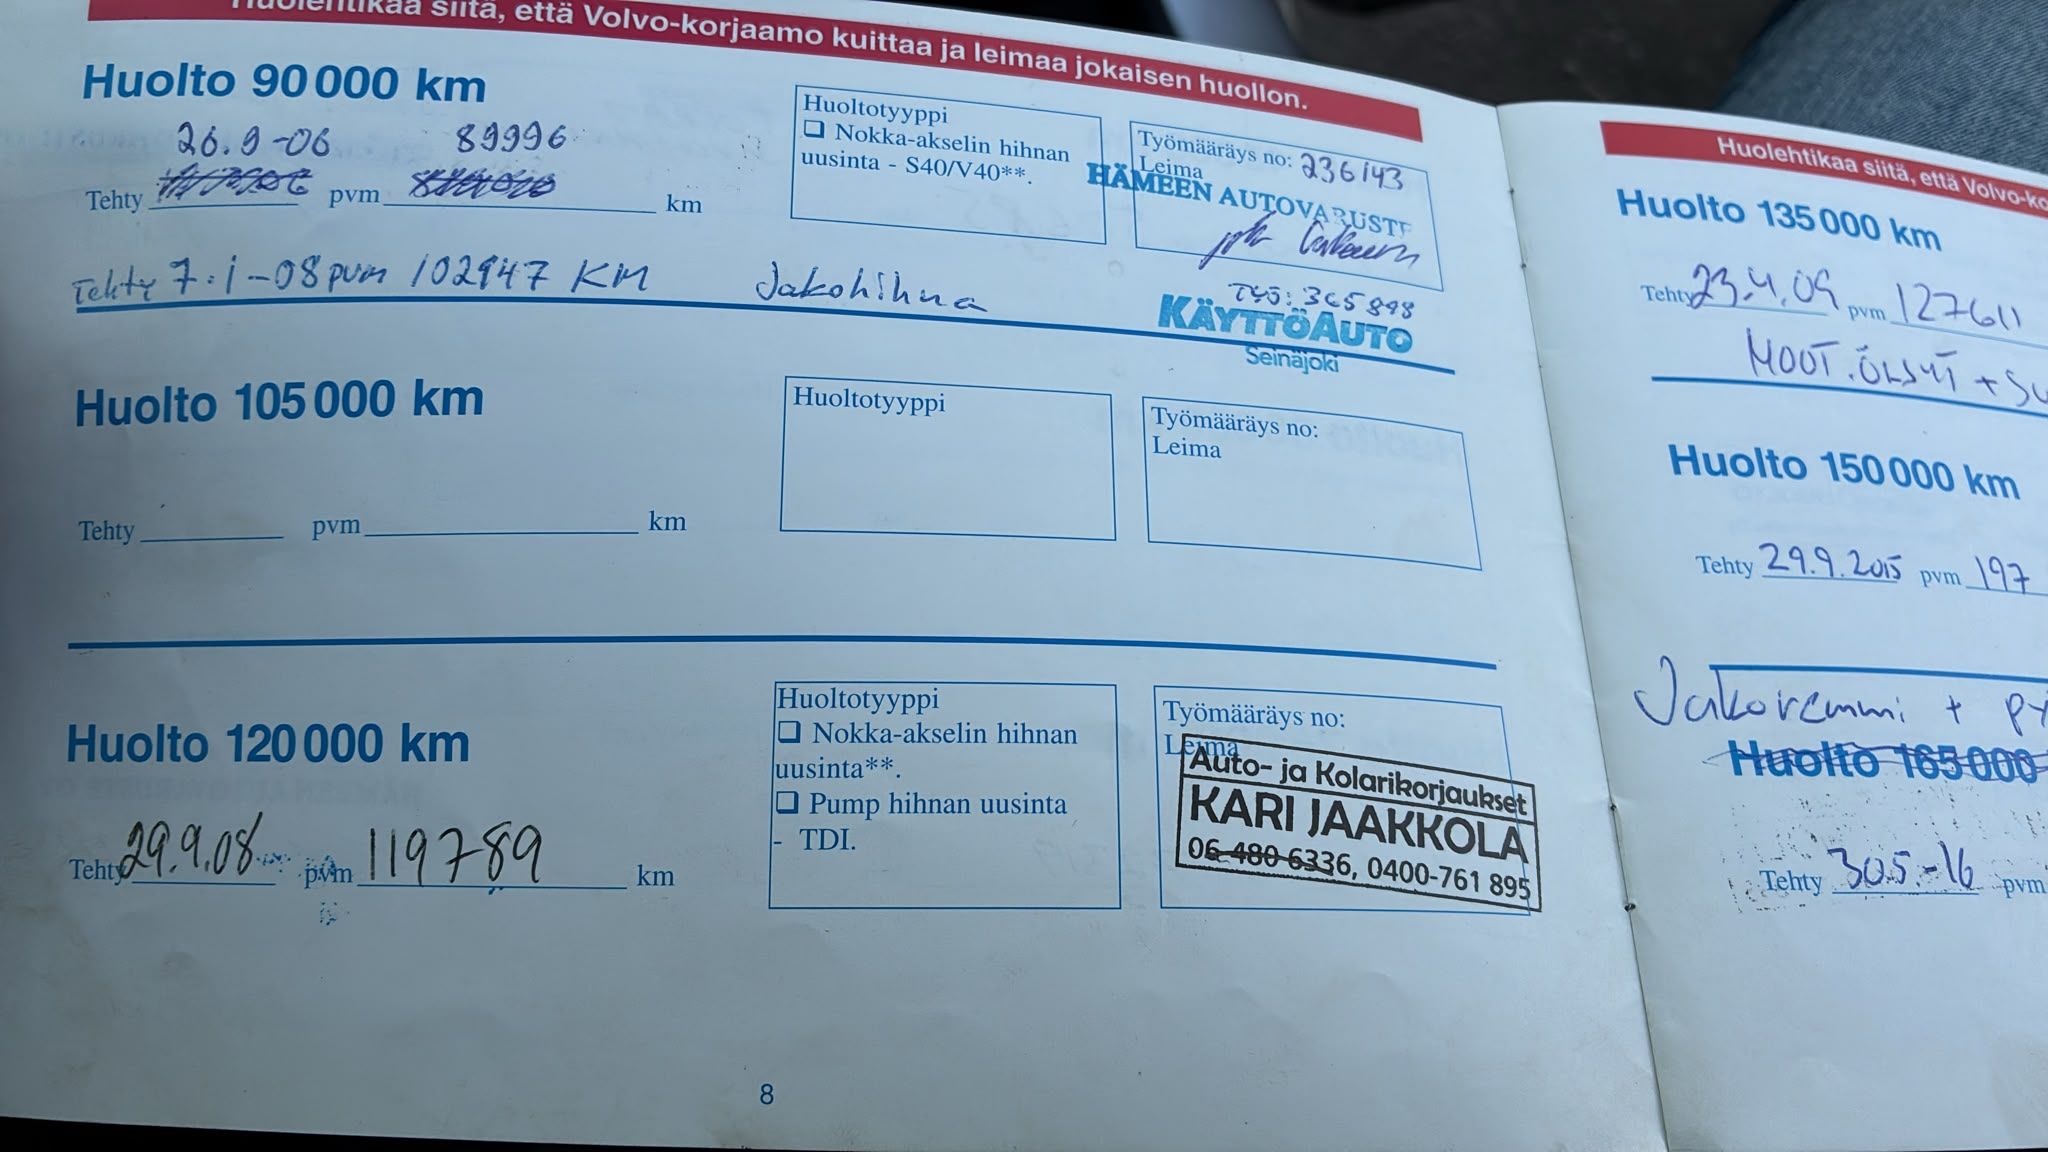 Huolehtikaa siitä, että Volvo-korjaamo kuittaa ja leimaa jokaisen huollon.
Huolto 90 000 km
26.9-06 89996
Tehty pvm km
Huoltotyyppi
❑ Nokka-akselin hihnan
uusinta - S40/V40**.
Työmääräys no: 236143
Leima
HÄMEEN AUTOVARUSTE
Tehty 7.1-08 pvm 102947 KM Jakohihna
Työ: 365898
KÄYTTÖAUTO
Seinäjoki
Huolto 105 000 km
Huoltotyyppi
Työmääräys no:
Leima
Tehty pvm km
Huolto 120 000 km
Huoltotyyppi
❑ Nokka-akselin hihnan
uusinta**.
❑ Pump hihnan uusinta
- TDI.
Työmääräys no:
Leima
Auto- ja Kolarikorjaukset
KARI JAAKKOLA
06-480 6336, 0400-761 895
Tehty 29.9.08 pvm 119789 km
8
Huolehtikaa siitä, että Volvo-ko
Huolto 135 000 km
Tehty 23.4.09 pvm 127611
MOOT.ÖLJYT + SU
Huolto 150 000 km
Tehty 29.9.2015 pvm 197
Jakoremmi +
Huolto 165 000
Tehty 30.5.-16 pvm